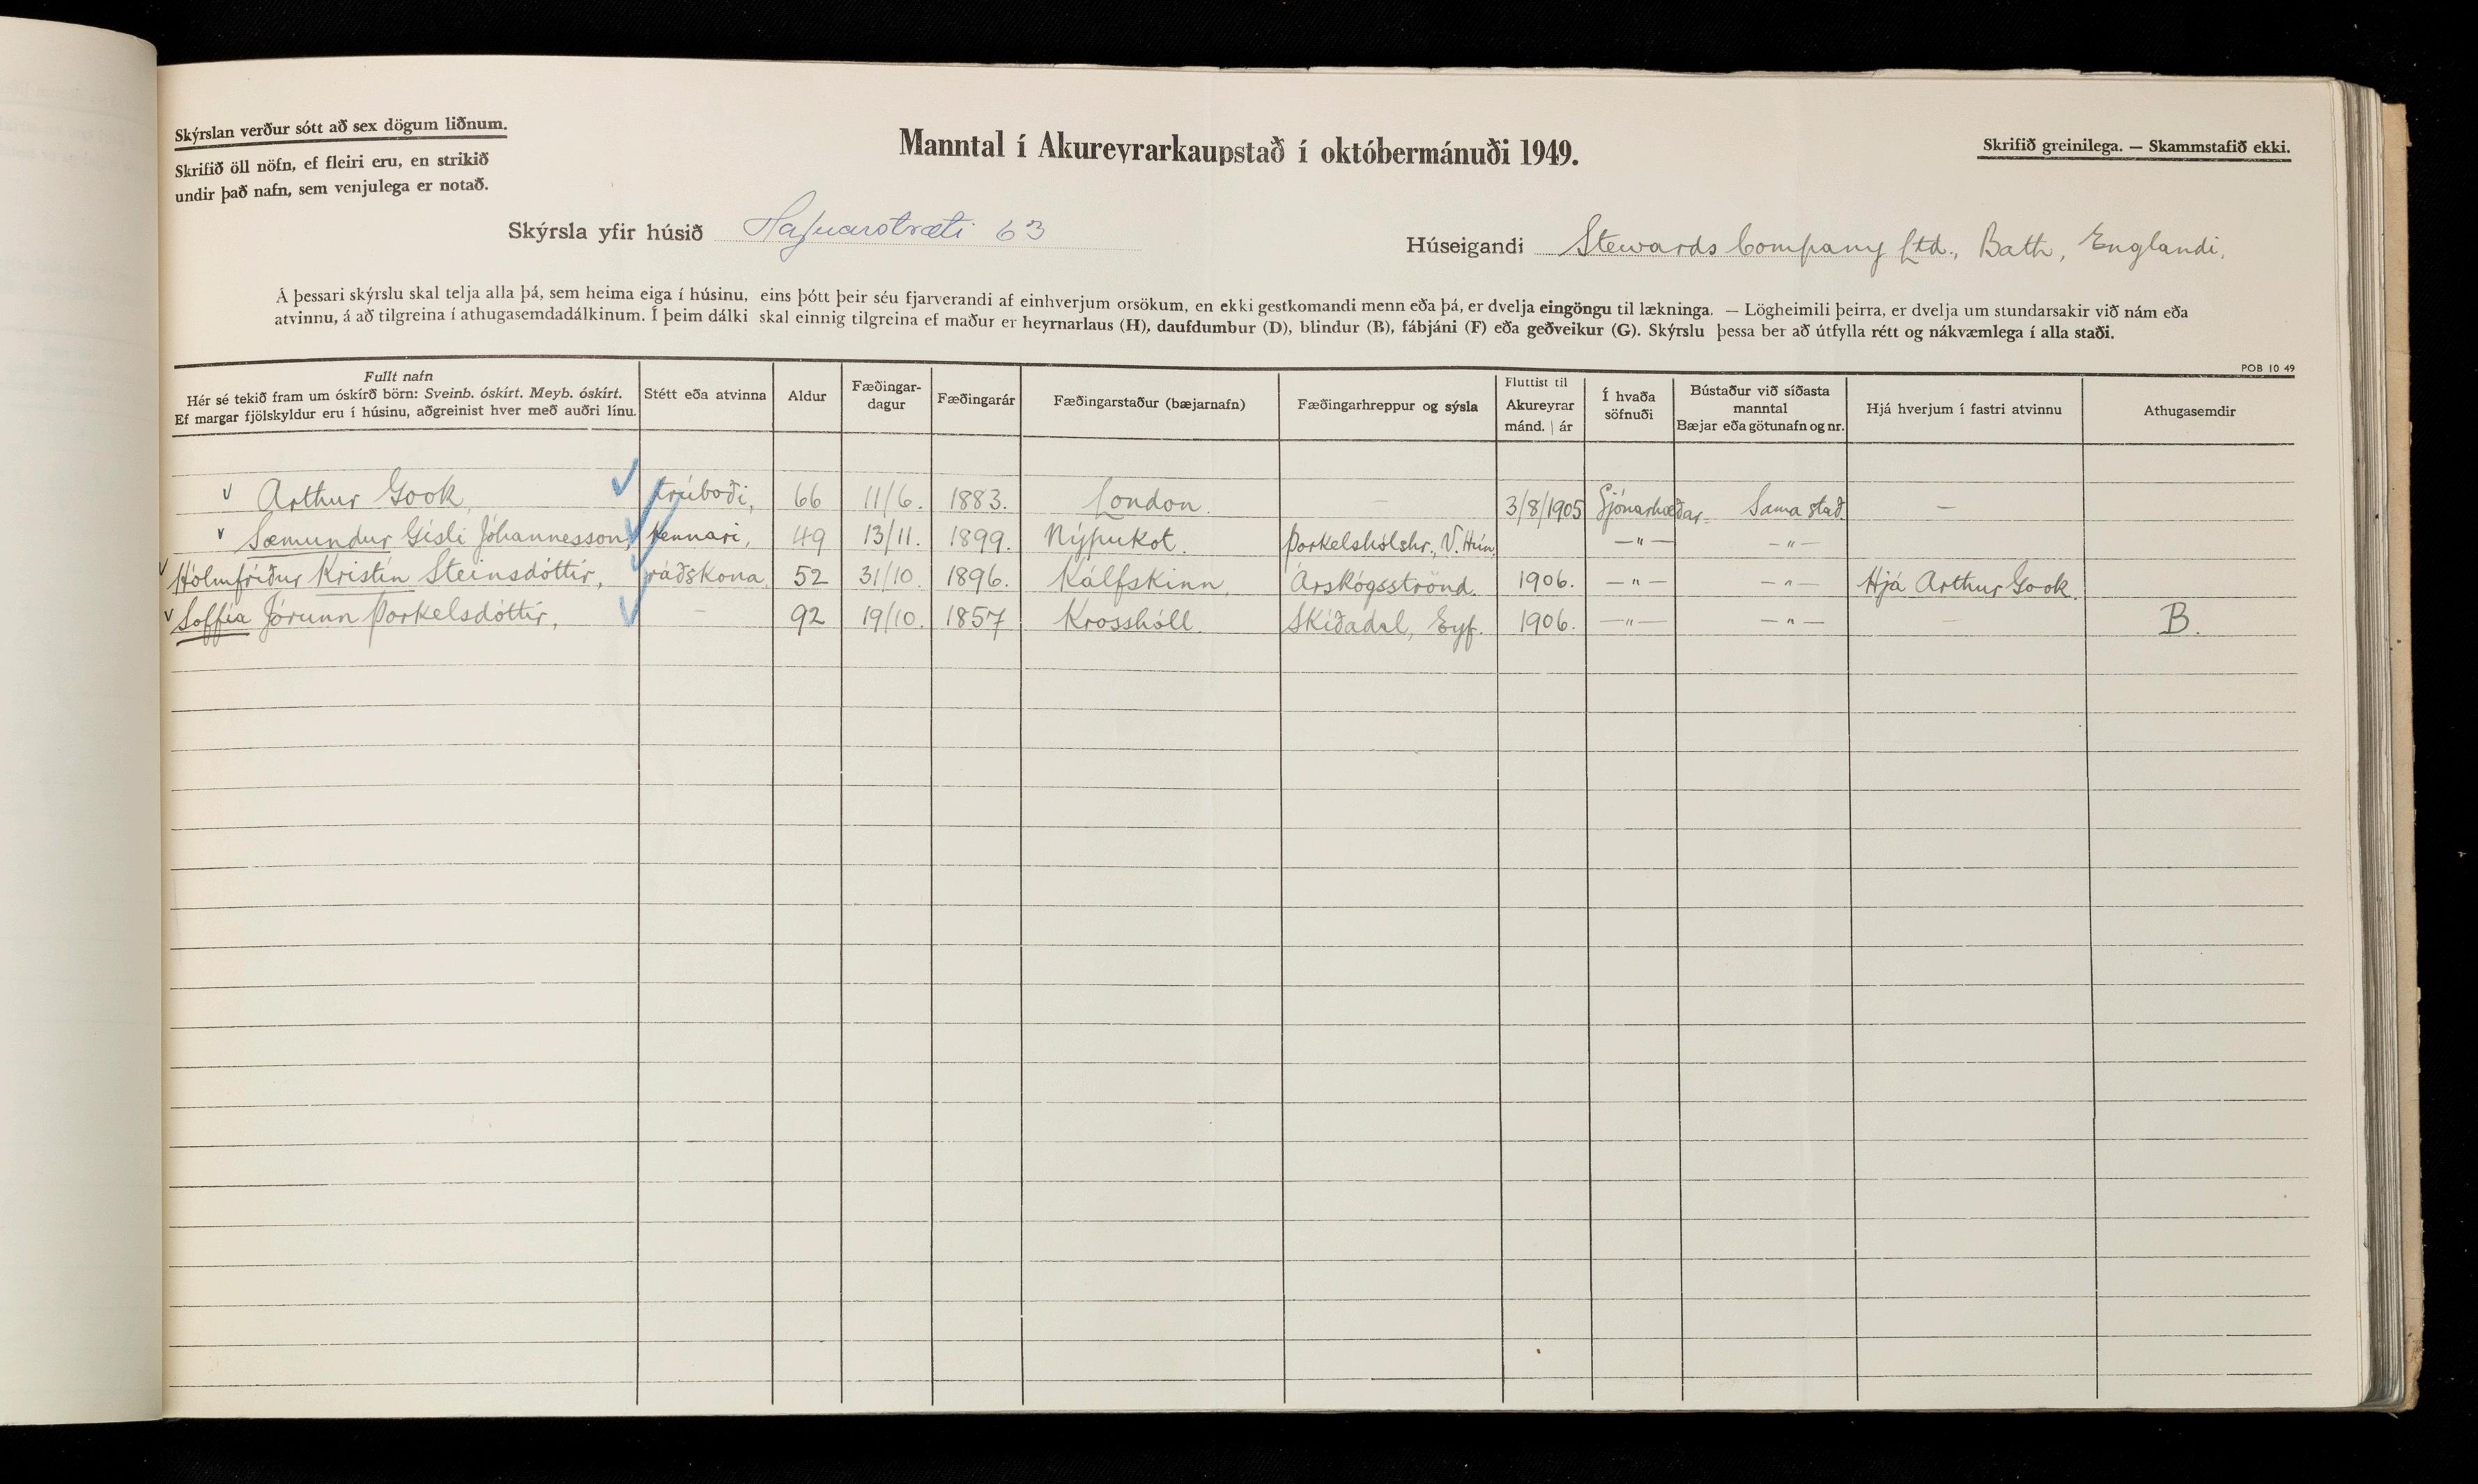 Skýrslan verður sótt að sex dögum liðnum.
Skrifið öll nöfn, ef fleiri eru, en strikið
undir það nafn, sem venjulega er notað.
Manntal í Akureyrarkaupstað í októbermánuði 1949.
Skrifið greinilega. — Skammstafið ekki.
Skýrsla yfir húsið Hafnarstræti 63
Húseigandi Stewards Company Ltd., Bath, Englandi.
Á þessari skýrslu skal telja alla þá, sem heima eiga í húsinu, eins þótt þeir séu fjarverandi af einhverjum orsökum, en ekki gestkomandi menn eða þá, er dvelja eingöngu til lækninga. — Lögheimili þeirra, er dvelja um stundarsakir við nám eða
atvinnu, á að tilgreina í athugasemdadálkinum. Í þeim dálki skal einnig tilgreina ef maður er heyrnarlaus (H), daufdumbur (D), blindur (B), fábjáni (F) eða geðveikur (G). Skýrslu þessa ber að útfylla rétt og nákvæmlega í alla staði.
POB 10 49
Fullt nafn
Hér sé tekið fram um óskírð börn: Sveinb. óskírt. Meyb. óskírt.
Ef margar fjölskyldur eru í húsinu, aðgreinist hver með auðri línu.
Stétt eða atvinna
Aldur
Fæðingar-
dagur
Fæðingarár
Fæðingarstaður (bæjarnafn)
Fæðingarhreppur og sýsla
Fluttist til
Akureyrar
mánd. | ár
Í hvaða
söfnuði
Bústaður við síðasta
manntal
Bæjar eða götunafn og nr.
Hjá hverjum í fastri atvinnu
Athugasemdir
v Arthur Gook, trúboði, 66 11/6. 1883. London. — 3/8/1905 Sjónarhæðar- Sama stað. —
v Sæmundur Gísli Jóhannesson, kennari, 49 13/11. 1899. Nýpukot. Þorkelshólshr., V. Hún. —"— —"—
v Hólmfríður Kristín Steinsdóttir, ráðskona, 52 31/10. 1896. Kálfskinn, Árskógsströnd. 1906. —"— —"— Hjá Arthur Gook.
v Soffía Jórunn Þorkelsdóttir, — 92 19/10. 1857 Krosshóll. Skíðadal, Eyf. 1906. —"— —"— — B.